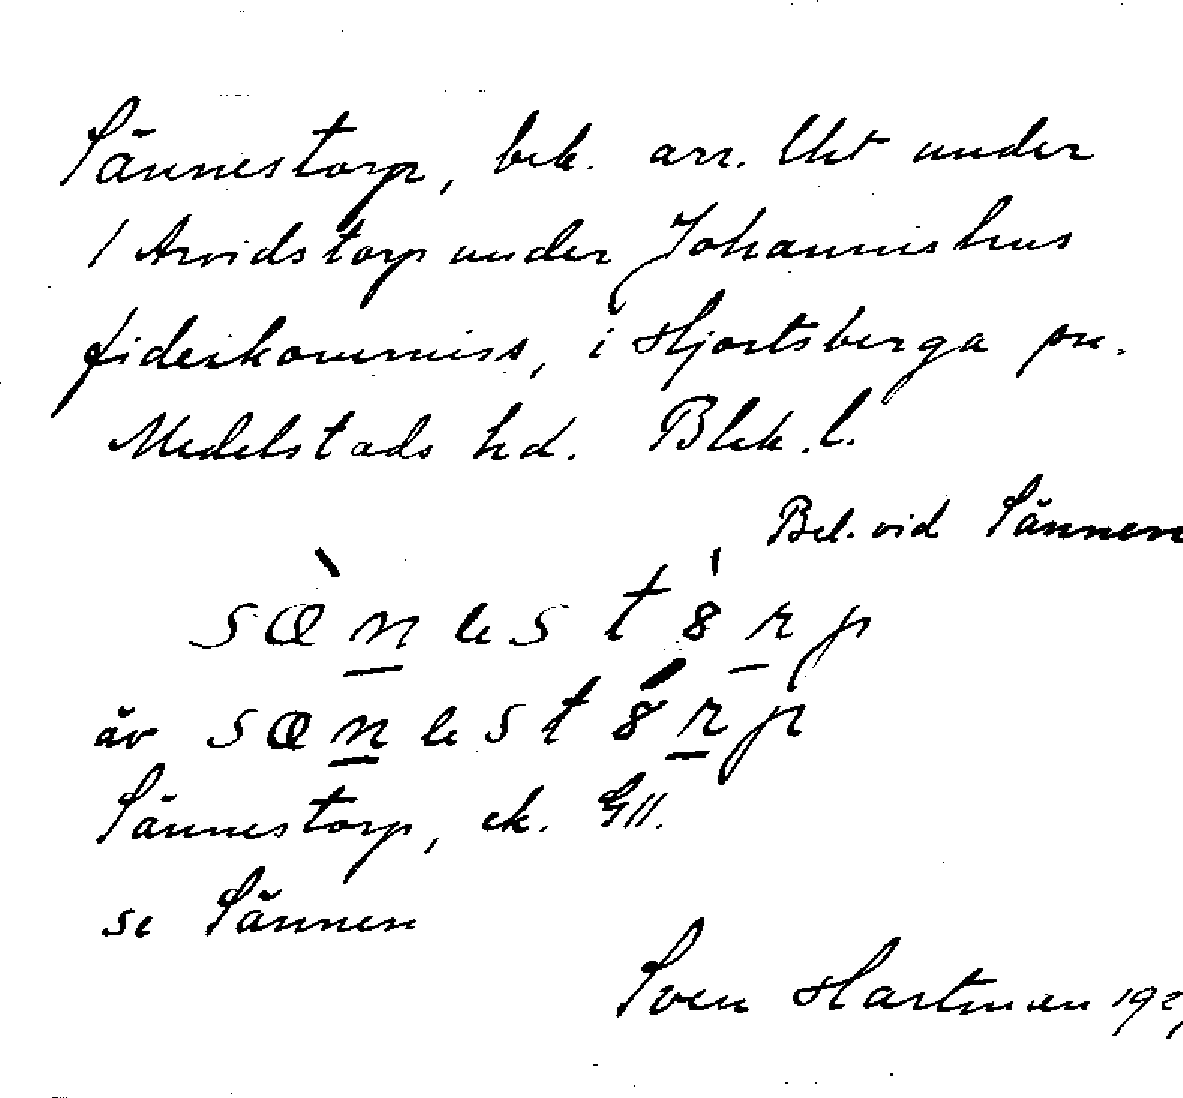 Sännestorp, beb. arr. lht under
1 Arvidstorp under Johannishus
fideikommiss, i Hjortsberga sn.
Medelstads hd. Blek. l.
Bel. vid Sännen
sæ̀nest8́rp
äv sænest8́rp
Sännestorp, ek. GII.
se Sännen
Sven Hartman 192